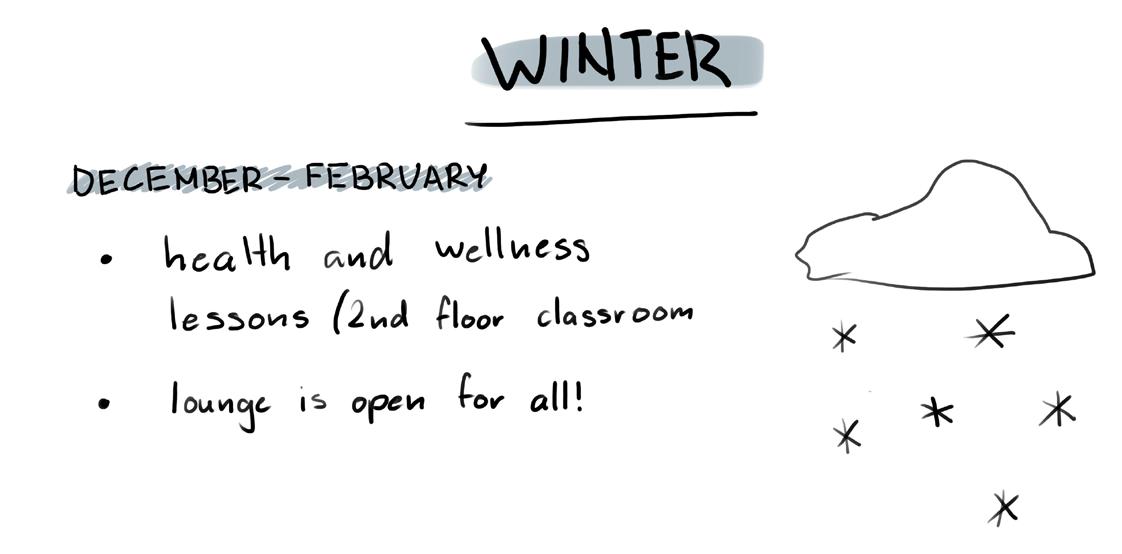 WINTER
DECEMBER - FEBRUARY
• health and wellness
lessons (2nd floor classroom
• lounge is open for all!